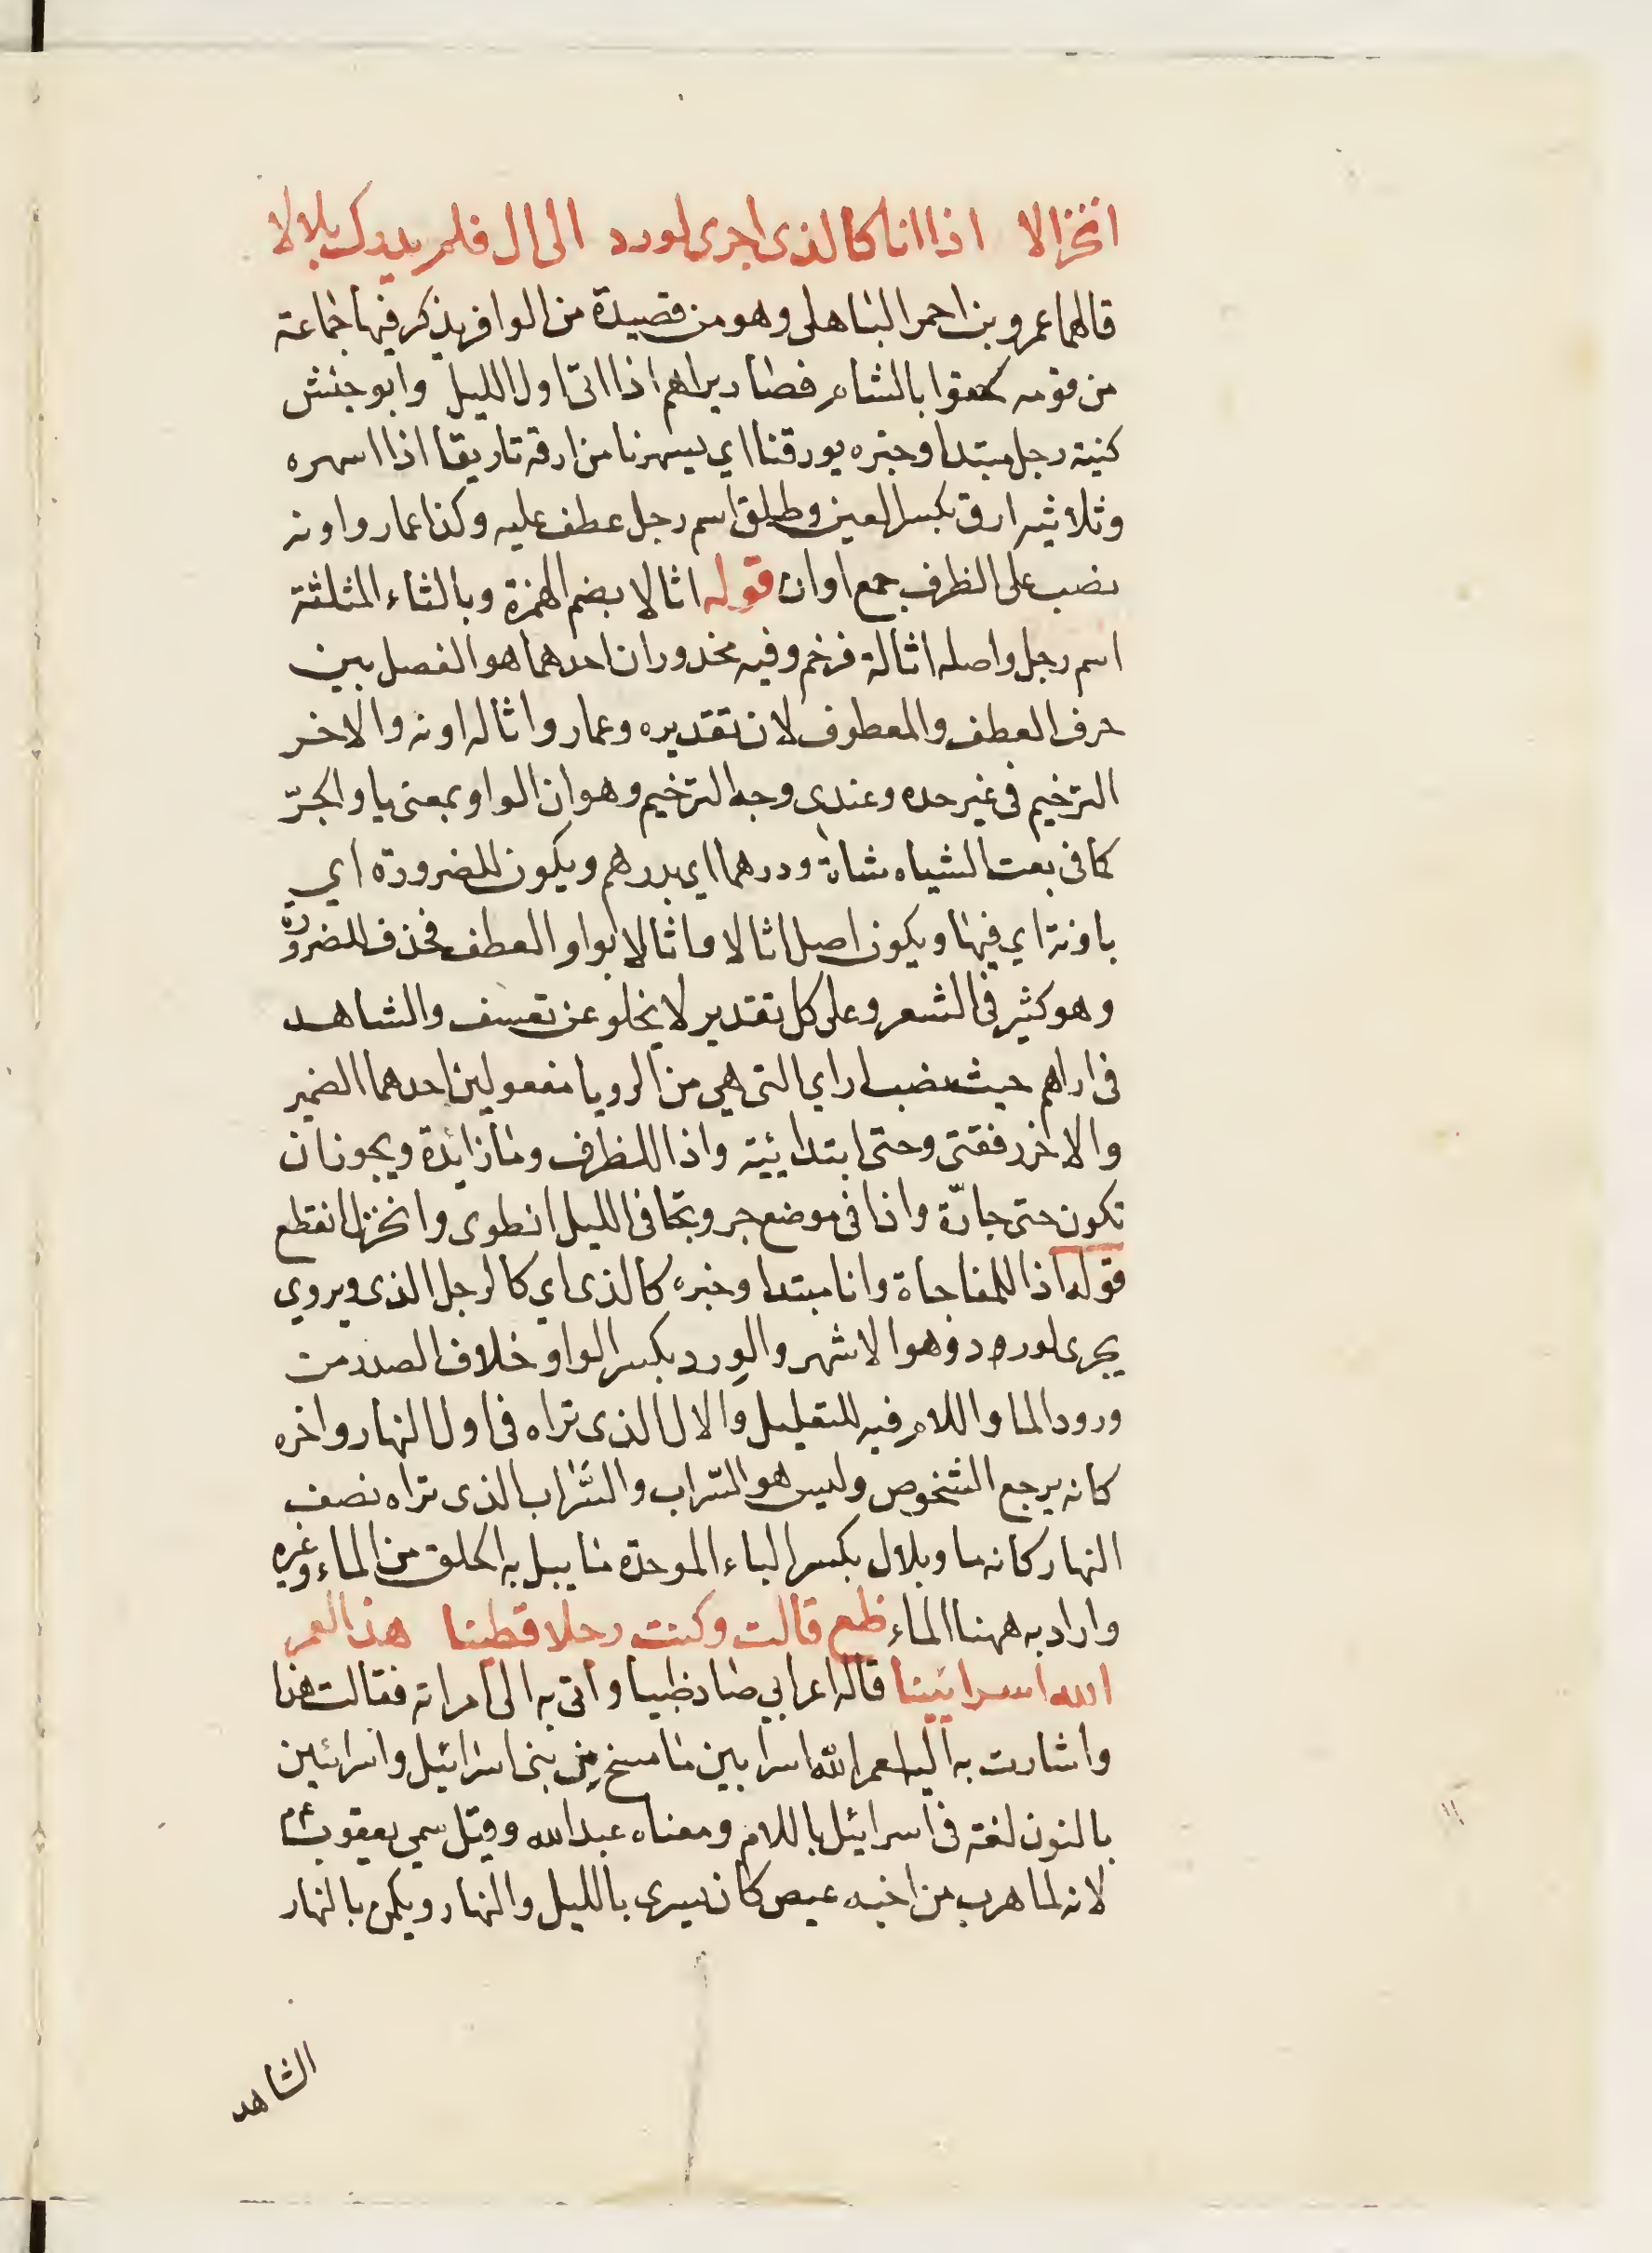 انخزالا اذا انا كالذى اجرى لورد الى ال فلم يدرك بلالا
قالهما عمرو بن احمر الباهلى وهو من قصيدة من الوافر يذكر فيها جماعة
من قومه لحقوا بالشام فصار يراهم اذا اتى اول الليل وابو حنش
كنية رجل مبتدا وخبره يورقنا اي يسهرنا من ارقه تاريقا اذا اسهره
وثلاثيه ارق بكسر العين وطلق اسم رجل عطف عليه وكذا عمار واونه
نصب على الظرف جمع اوان قوله اثالا بضم الهمزة وبالثاء المثلثة
اسم رجل واصله اثالة فرخم وفيه محذوران احدهما هو الفصل بين
حرف العطف والمعطوف لان تقديره وعمار واثاله اونه والاخر
الترخيم فى غير حده وعندى وجه الترخيم وهو ان الواو بمعنى باو الجرّ
كما فى بعت الشياه شاة ودرهما اى بدرهم ويكون للضرورة اي
باونة اي فيها ويكون اصل اثالا واثالا بواو العطف فحذف للضرورة
وهو كثير فى الشعر وعلى كل تقدير لا يخلو عن تعسف والشاهد
فى اراهم حيث نصب اراي التى هي من الرويا مفعولين احدهما الضمير
والاخر رفقتى وحتى ابتدائية واذا للظرف وما زائدة ويجوز ان
تكون حتى جارّة واذا فى موضع جر وتجافى الليل انطوى وانخزل انقطع
قوله اذا للمفاجاة وانا مبتدا وخبره كالذى اي كالرجل الذى ويروي
يجرى لورد وهو الاشهر والوِرد بكسر الواو خلاف الصدر من
ورود الما واللام فيه للتعليل والال الذى تراه فى اول النهار واخره
كانه يرجع الشخوص وليس هو السّراب والسَّراب الذى تراه نصف
النهار كانه ما وبلال بكسر الباء الموحدة ما يبل به الحلق من الماء وغيره
واراد به ههنا الماء ظع قالت وكنت رجلا فطينا هذا لعمر
الله اسرائينا قاله اعرابي صاد ظبيا واتى به الى امراته فقالت هذا
واشارت به اليه لعمر الله اسرايين ما مسخ من بنى اسرائيل واسرائين
بالنون لغة فى اسرائيل باللام ومعناه عبد الله وقيل سمي يعقوب
لانه لما هرب من اخيه عيص كان يسرى بالليل والنهار ويكمن بالنهار
الشاهد